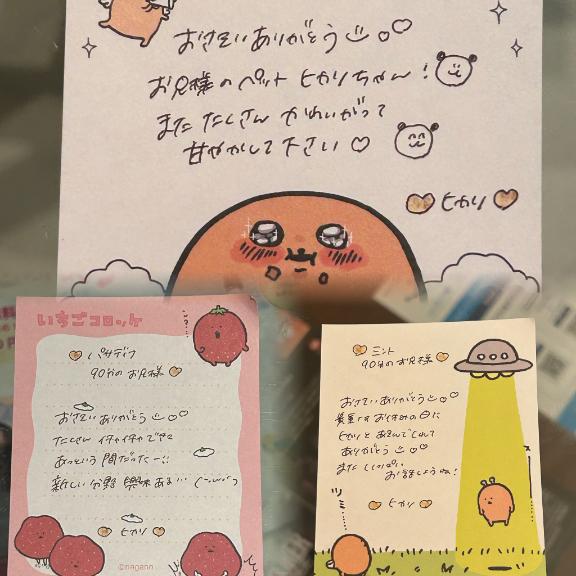 おさそいありがとう
お兄様のペット ヒカリちゃん!
また たくさん かわいがって
甘やかして下さい♡
ヒカリ
いちごコロッケ
パサディナ
90分の お兄様
おさそい ありがとう
たくさん イチャイチャできて
あっという間だったー!!
新しい分野 興味あるー
ヒカリ
©nagano
ミント
90分の お兄様
おさそいありがとう
貴重なお休みの日に
ヒカリと あそんでくれて
ありがとう
また いっぱい
お話しようね!
ヒカリ